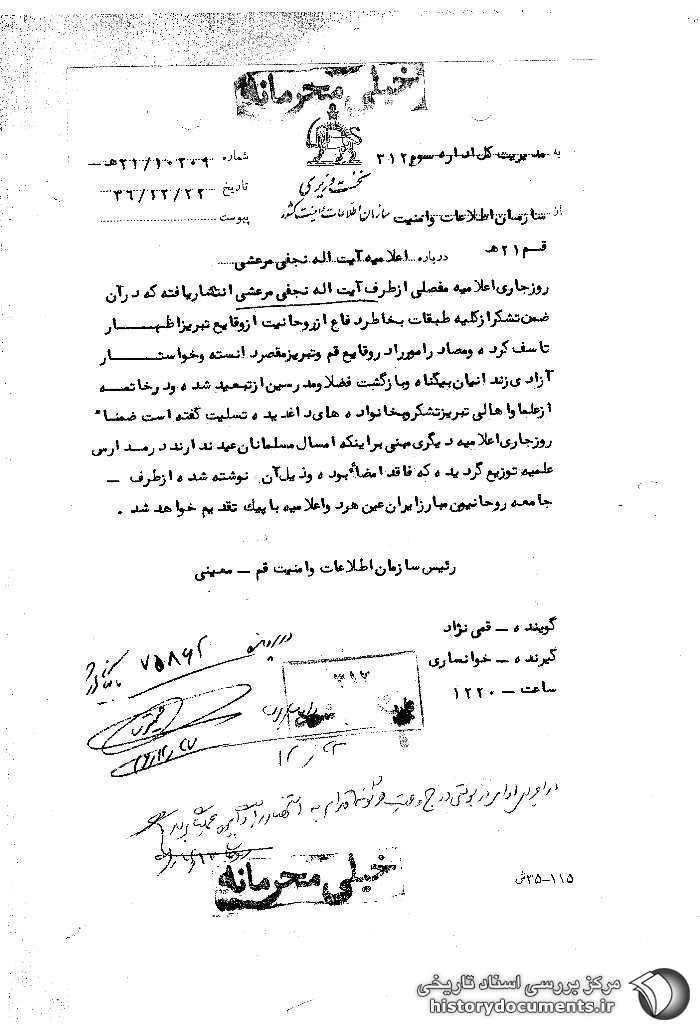 خیلی محرمانه
به مدیریت کل اداره سوم ۳۱۲
شماره ۲۱/۱۰۲۰۹هـ
نخست وزیری
تاریخ ۳۶/۱۲/۲۲
از سازمان اطلاعات وامنیت
سازمان اطلاعات و امنیت کشور
پیوست
قم ۲۱هـ
درباره اعلامیه آیت اله نجفی مرعشی
روزجاری اعلامیه مفصلی ازطرف آیت اله نجفی مرعشی انتشاریافته که درآن
ضمن تشکر ازکلیه طبقات بخاطر دفاع از روحانیت ازوقایع تبریز اظهار
تاسف کرده ومصادر امور را در وقایع قم وتبریز مقصر دانسته وخواستار
آزادی زندانیان بیگناه وبازگشت فضلا ومدرسین ازتبعید شده ودرخاتمه
ازعلما واهالی تبریز تشکر وبخانواده های داغدیده تسلیت گفته است ضمناً
روزجاری اعلامیه دیگری مبنی براینکه امسال مسلمانان عید ندارند درمدارس
علمیه توزیع گردیده که فاقد امضاء بوده وذیل آن نوشته شده ازطرف ـ
جامعه روحانیون مبارز ایران عین هردو اعلامیه با پیك تقدیم خواهد شد .
رئیس سازمان اطلاعات وامنیت قم ـ معینی
گوینده ـ قمی نژاد
گیرنده ـ خوانساری
ساعت ـ ۱۲۲۰
در پرونده ۷۵۸۶۲
۳۱۲
خیلی محرمانه
۱۱۵-۳۵ش
مرکز بررسی اسناد تاریخی
historydocuments.ir